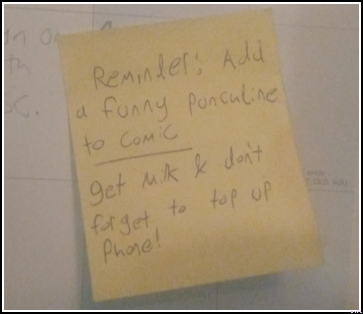 Reminder; Add
a funny punculine
to comic
get milk & don't
forget to top up
Phone!